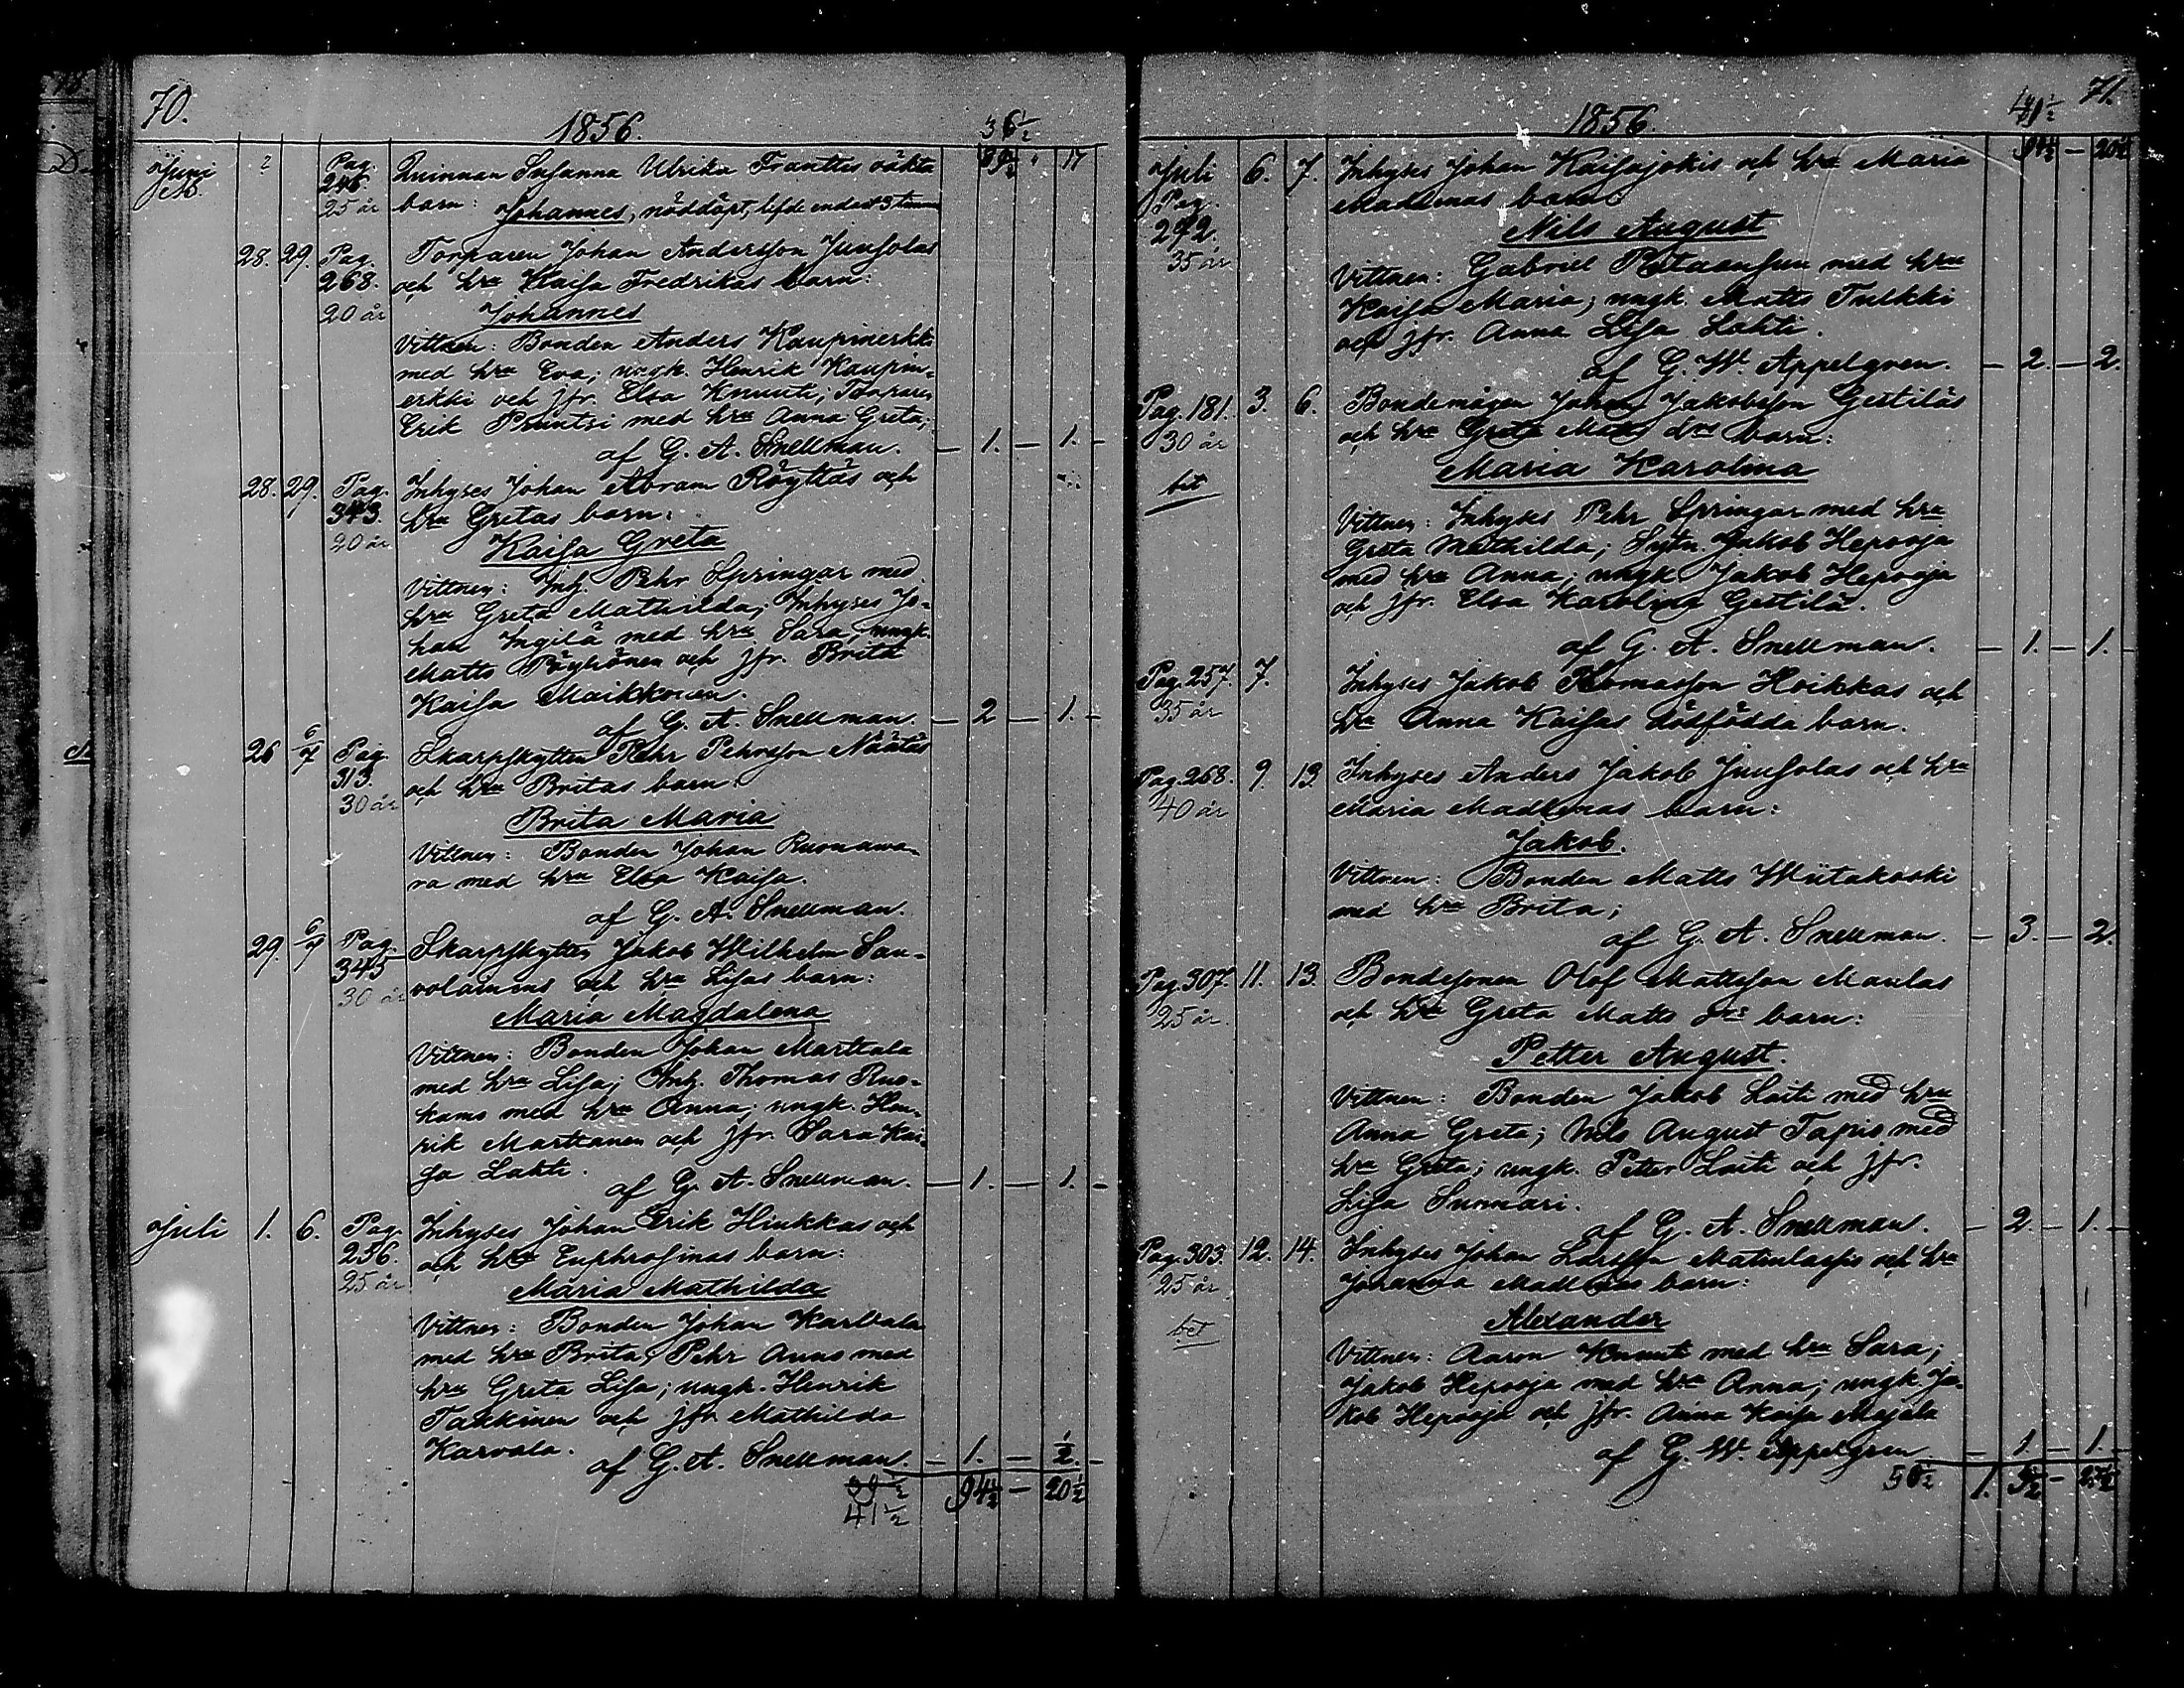 70.
1856.
36½
Juni ? Pag. 246. 25 år Quinnan Susanna Ulrika Franttis oäkta 17
barn: Johannes, nöddöpt, lefde endast 3 timm
28. 29. Pag. 268. 20 år Torparen Johan Andersson Junsolas
och hru Kaisa Fredrikas barn:
Johannes
Vittnen: Bonden Anders Kaupinerkki
med hru Eva; ungk. Henrik Kaupin-
erkki och jfr. Elsa Knuuti; Torparen
Erik Pruntsi med hru Anna Greta;
af G. A. Snellman. — 1. — 1. —
28. 29. Pag. 343. 20 år Inhyses Johan Abram Röyttäs och
hru Gretas barn:
Kaisa Greta
Vittnen: Inh. Pehr Springar med
hru Greta Mathilda; Inhyses Jo-
han Ingilä med hru Sara; ungk.
Matts Pöyhönen och jfr. Brita
Kaisa Maikkonen.
af G. A. Snellman. — 2 — 1. —
26 6/7 Pag. 313. 30 år Skarpskytten Pehr Pehrsson Näätäs
och hru Britas barn:
Brita Maria
Vittnen: Bonden Johan Ruonawa-
ra med hru Elsa Kaisa.
af G. A. Snellman.
29. 6/7 Pag. 345 30 år Skarpskytten Jakob Wilhelm Sau-
volainens och hru Lisas barn:
Maria Magdalena
Vittnen: Bonden Johan Marttala
med hru Lisa; Inh. Thomas Ruo-
kamo med hru Anna; ungk. Hen-
rik Marttanen och jfr. Sara Kai-
sa Lahti.
af G. A. Snellman. — 1. — 1. —
Juli 1. 6. Pag. 256. 25 år Inhyses Johan Erik Hiukkas och
och hru Euphrosinas barn:
Maria Mathilda
Vittnen: Bonden Johan Karvala
med hru Brita; Pehr Auno med
hru Greta Lisa; ungk. Henrik
Takkinen och jfr Mathilda
Karvala.
af G. A. Snellman — 1. — ½. —
94½ — 20½
41½
71.
1856.
94½ — 20½
Juli 6. 7. Inhyses Johan Kaisajokis och hru Maria
Pag. 272. 35 år Madlenas barn:
Nils August
Vittnen: Gabriel med hru
Kaisa Maria; ungk. Matts Tulkki
och jfr. Anna Lisa Lahti.
af G. W. Appelgren. — 2. — 2.
Pag. 181. 3. 6. Bondemågen Johan Jakobsson Gestiläs
30 år och hru Greta Matts drs barn:
Maria Karolina
bet
Vittnen: Inhyses Pehr Springar med hru
Greta Mathilda; Sytn. Jakob Hepooja
med hru Anna; ungk Jakob Hepooja
och jfr. Elsa Karolina Gestilä.
af G. A. Snellman. — 1. — 1. —
Pag. 257. 7. Inhyses Jakob Thomasson Hoikkas och
35 år hru Anna Kaisas dödfödda barn.
Pag. 268. 9. 13 Inhyses Anders Jakob Junsolas och hru
40 år Maria Madlenas barn:
Jakob.
Vittnen: Bonden Matts Wiitakoski
med hru Brita;
af G. A. Snellman. — 3. — 2.
Pag. 307. 11. 13. Bondesonen Olof Mattsson Maulas
25 år och hru Greta Matts drs barn:
Petter August.
Vittnen: Bonden Jakob Laiti med hru
Anna Greta; Nils August Tapio med
hru Greta; ungk. Petter Laiti och jfr.
Lisa Summari.
af G. A. Snellman. — 2. — 1. —
Pag. 303. 12. 14. Inhyses Johan Larsson Matinlassis och hru
25 år Johanna Madlenas barn:
Alexander
bet
Vittnen: Aaron Knuuti med hru Sara;
Jakob Hepooja med hru Anna; ungk Ja-
kob Hepooja och jfr. Anna Kaisa Majala
af G. W. Appelgren — 1. — 1. —
50½ 1.